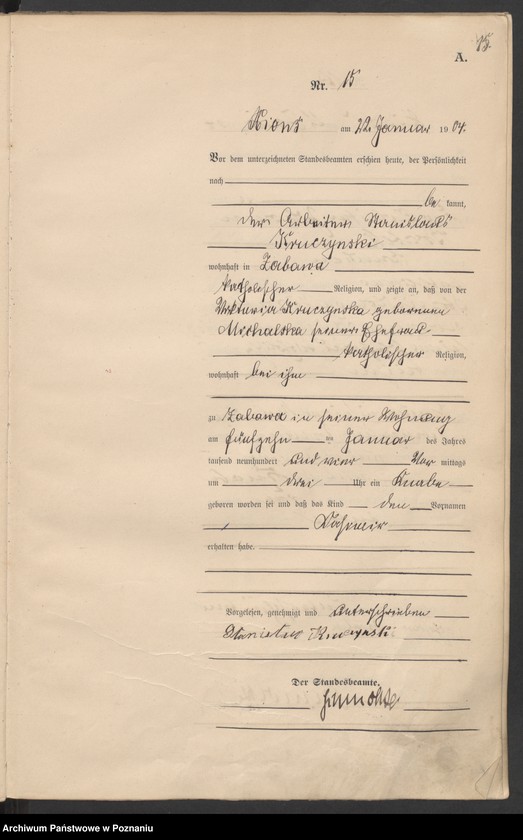 15.
A.
Nr. 15
Xions am 22 Januar 1904.
Vor dem unterzeichneten Standesbeamten erschien heute, der Persönlichkeit
nach
be kannt,
der Arbeiter Stanislaus
Kruczynski
wohnhaft in Zabawa
katholischer Religion, und zeigte an, daß von der
Viktoria Kruczynska geborenen
Michalska seiner Ehefrau
katholischer Religion,
wohnhaft bei ihm
zu Zabawa in seiner Wohnung
am fünfzehn ten Januar des Jahres
tausend neunhundert und vier Vor mittags
um drei Uhr ein Knabe
geboren worden sei und daß das Kind den Vornamen
Kasimir
erhalten habe.
Vorgelesen, genehmigt und unterschrieben
Stanislus Kruczynski
Der Standesbeamte.
Archiwum Państwowe w Poznaniu